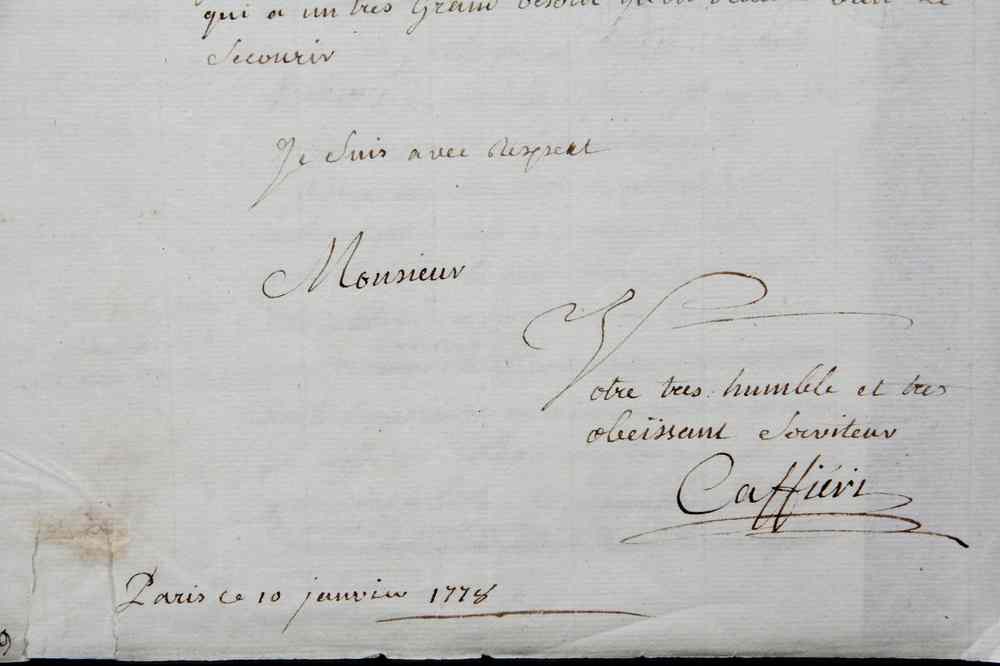 qui a un tres Grand besoin
Secourir
Je Suis avec Respect
Monsieur
Votre tres humble et tres
obeïssant Serviteur
Caffiéri
Paris ce 10 janvier 1778